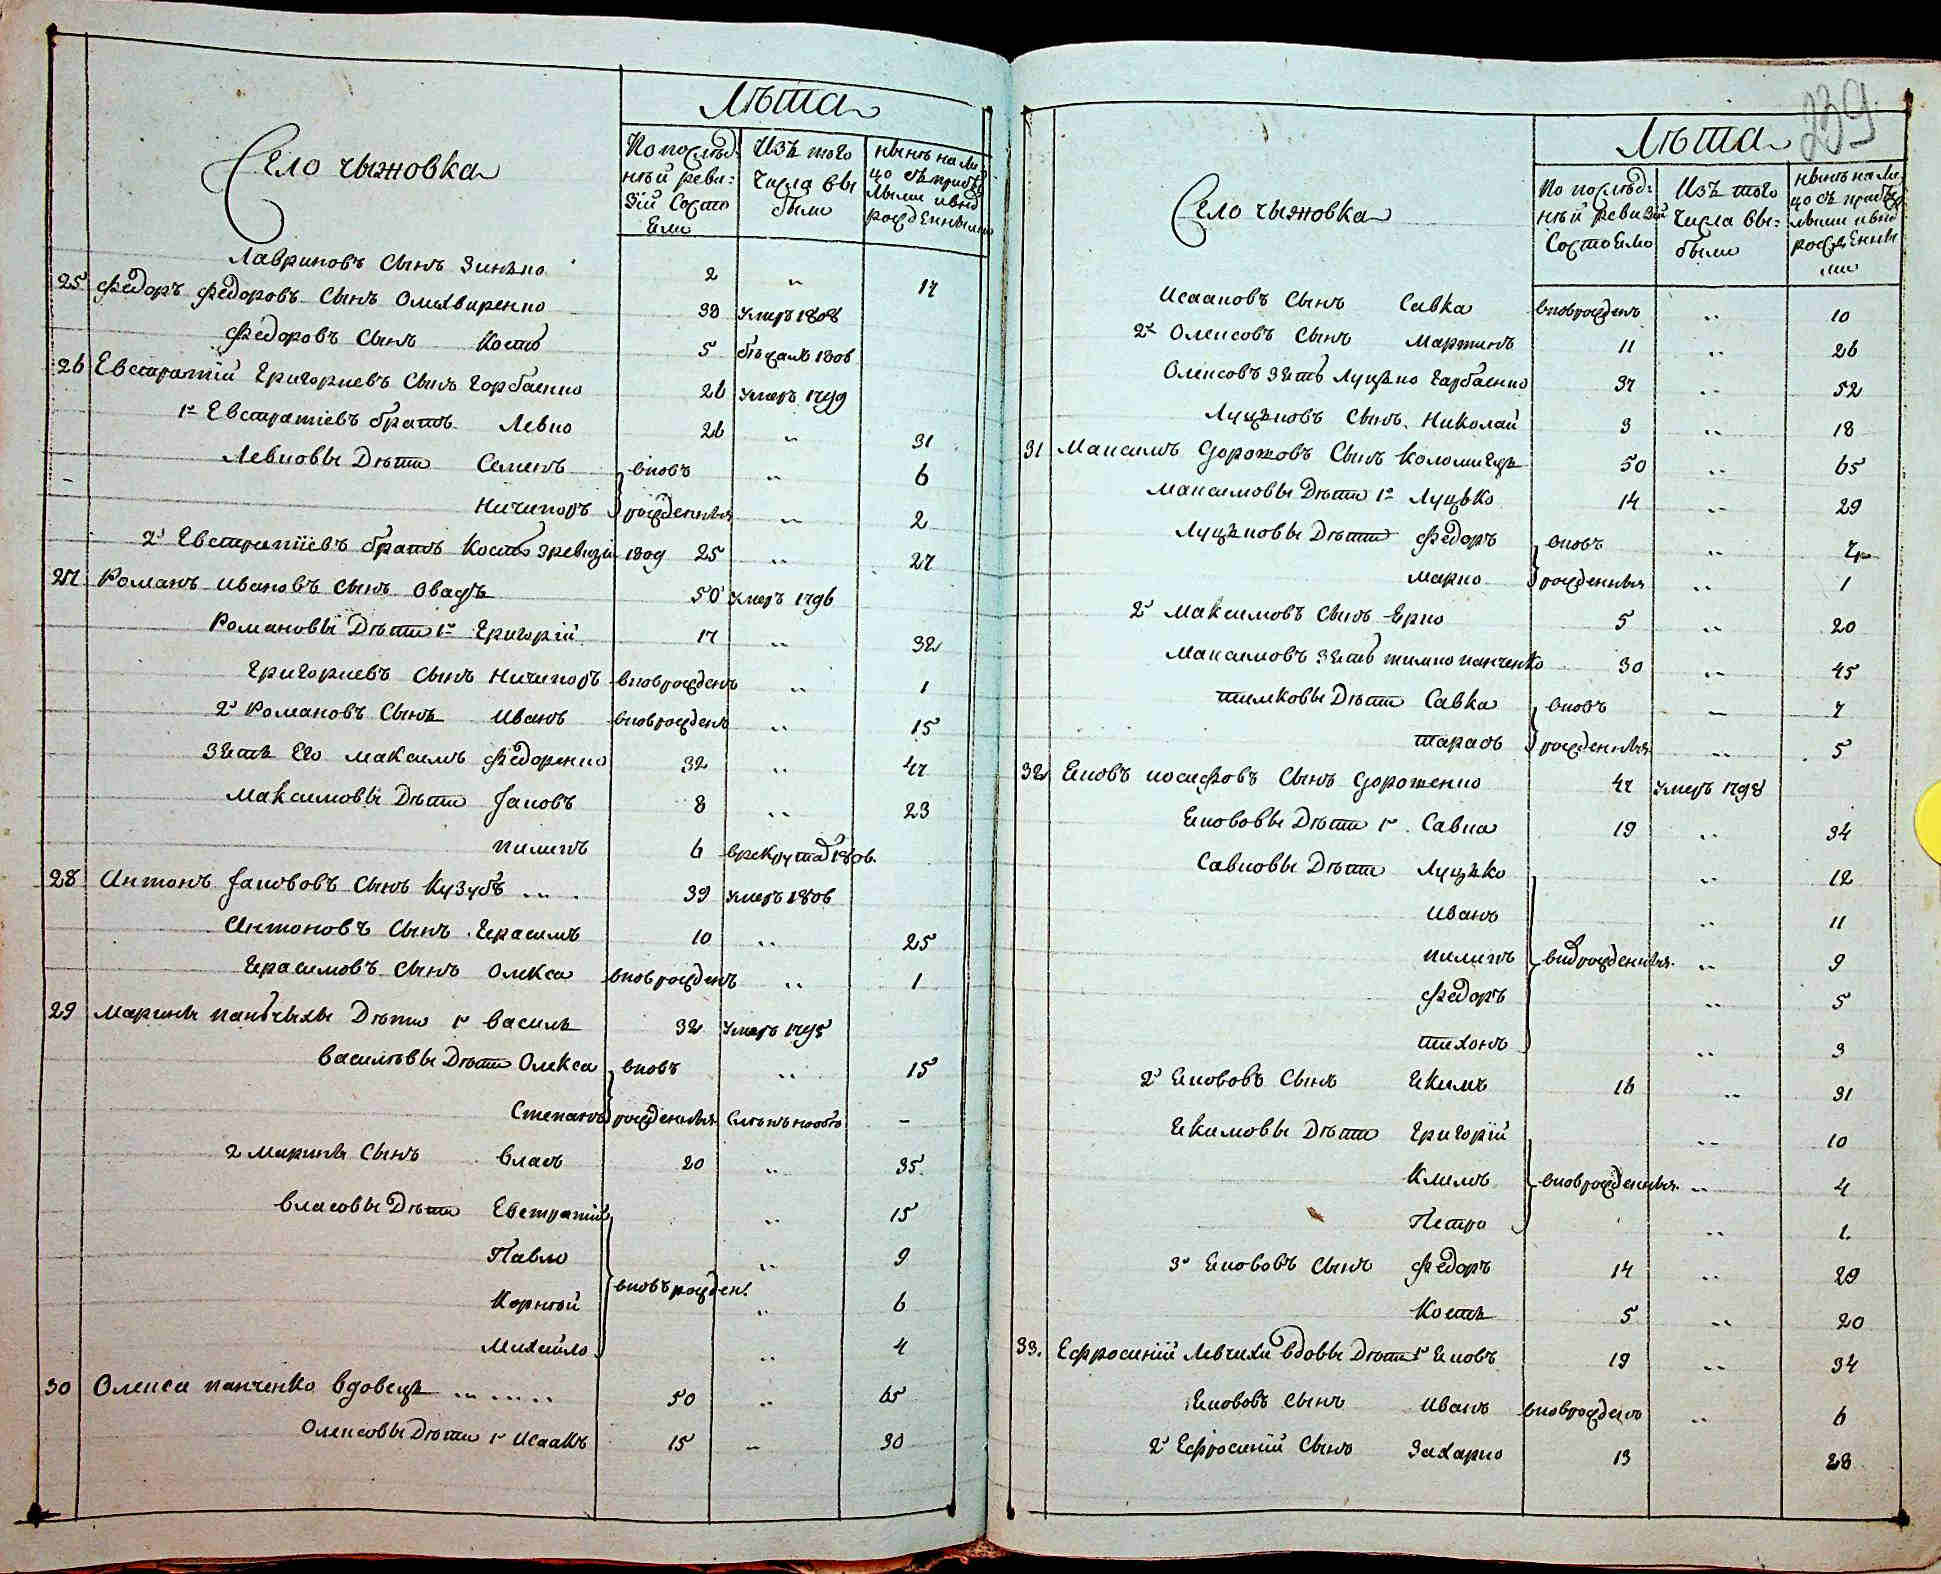 Лѣта
Село чыжовка
По послѣд:
нѣй реви:
зїи состо
яли
Изъ того
числа вы
были
нынѣ на ли
цо съ прибы
лыми и внов
рожденными
Лавриновъ сынъ Зинько 2 „ 17
25 Федоръ Федоровъ сынъ 33 умеръ 1808
Федоровъ сынъ Кость 5 бѣжалъ 1806
26 Евстратїй Григориевъ сынъ Горбаенко 26 умеръ 1799
1й Евстратїевъ братъ Левко 26 „ 31
Левковы дѣти Семенъ вновъ „ 6
Ничипоръ рожденныя „ 2
2й Евстратїевъ братъ Кость зревизїи 1809 25 „ 27
27 Романъ Ивановъ сынъ Овадъ 50 умеръ 1796
Романовы дѣти 1й Григорїй 17 „ 32
Григориевъ сынъ Ничипоръ вноврожденъ „ 1
2й Романовъ сынъ Иванъ вноврожденъ „ 15
Зять Его Максимъ Федоренко 32 „ 47
Максимовы дѣти Яковъ 8 „ 23
Пилипъ 6 врекруты 1806.
28 Антонъ Якововъ сынъ Кузубъ 39 умеръ 1806
Антоновъ сынъ Герасимъ 10 „ 25
Герасимовъ сынъ Олекса вноврожденъ „ 1
29 Марины дѣти 1й Василь 32 умеръ 1795
Васильвы дѣти Олекса вновъ „ 15
Степанъ рожденныя –
2 Марины сынъ Власъ 20 „ 35.
Власовы дѣти Евстратїй „ 15
Павло „ 9
вновърожден:
Корнѣй „ 6
Михайло „ 4
30 Олекса Панченко вдовецъ 50 „ 65
Олексовы дѣти 1й Исаакъ 15 „ 30
239
Лѣта
Село чыжовка
По послѣд:
нѣй ревизїй
состояло
Изъ того
числа вы:
были
нынѣ на ли
цо съ прибы
лыми и внов
рожденны
ми
Исааковъ сынъ Савка вноврожденъ „ 10
2й Олексовъ сынъ Мартинъ 11 „ 26
Олексовъ зять Луцько Гарбаенко 37 „ 52
Луцьковъ сынъ Николай 3 „ 18
31 Максимъ Дорожовъ сынъ Коломиецъ 50 „ 65
Максимовы дѣти 1й Луцько 14 „ 29
Луцьковы дѣти Федоръ вновъ „
Марко рожденныя „ 1
2й Максимовъ сынъ Ярко 5 „ 20
Максимовъ зять Тимко Панченко 30 „ 45
Тимковы дѣти Савка вновъ „ 7
Тарасъ рожденныя „ 5
32 Яковъ Иосифовъ сынъ Дорошенко 47 умеръ 1798
Якововы дѣти 1й Савка 19 „ 34
Савковы дѣти Луцько „ 12
Иванъ „ 11
Пилипъ вноврожденныя. „ 9
Федоръ „ 5
Тихонъ „ 3
2й Якововъ сынъ Якимъ 16 „ 31
Якимовы дѣти Григорїй „ 10
Климъ вноврожденныя. „ 4
Петро „ 1.
3й Якововъ сынъ Федоръ 14 „ 29
Кость 5 „ 20
33. Ефросинїй Левчихи вдовы дѣти 1й Яковъ 19 „ 34
Якововъ сынъ Иванъ вноврожденъ „ 6
2й Ефросинїй сынъ Захарко 13 „ 28